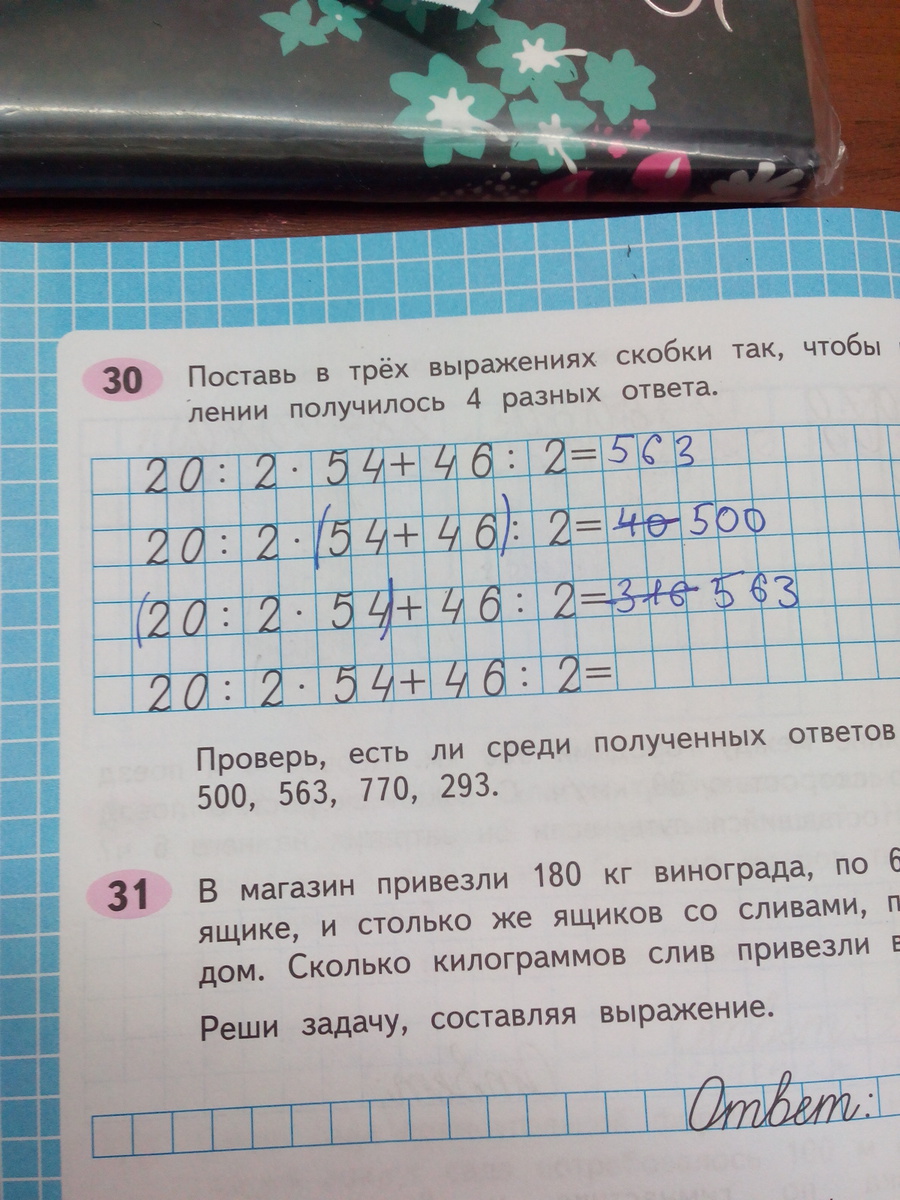 30 Поставь в трёх выражениях скобки так, чтобы
лении получилось 4 разных ответа.
20 : 2 · 54 + 46 : 2 = 563
20 : 2 · (54 + 46) : 2 = 40 500
(20 : 2 · 54) + 46 : 2 = 316 563
20 : 2 · 54 + 46 : 2 =
Проверь, есть ли среди полученных ответов
500, 563, 770, 293.
31 В магазин привезли 180 кг винограда, по 6
ящике, и столько же ящиков со сливами, п
дом. Сколько килограммов слив привезли в
Реши задачу, составляя выражение.
Ответ: